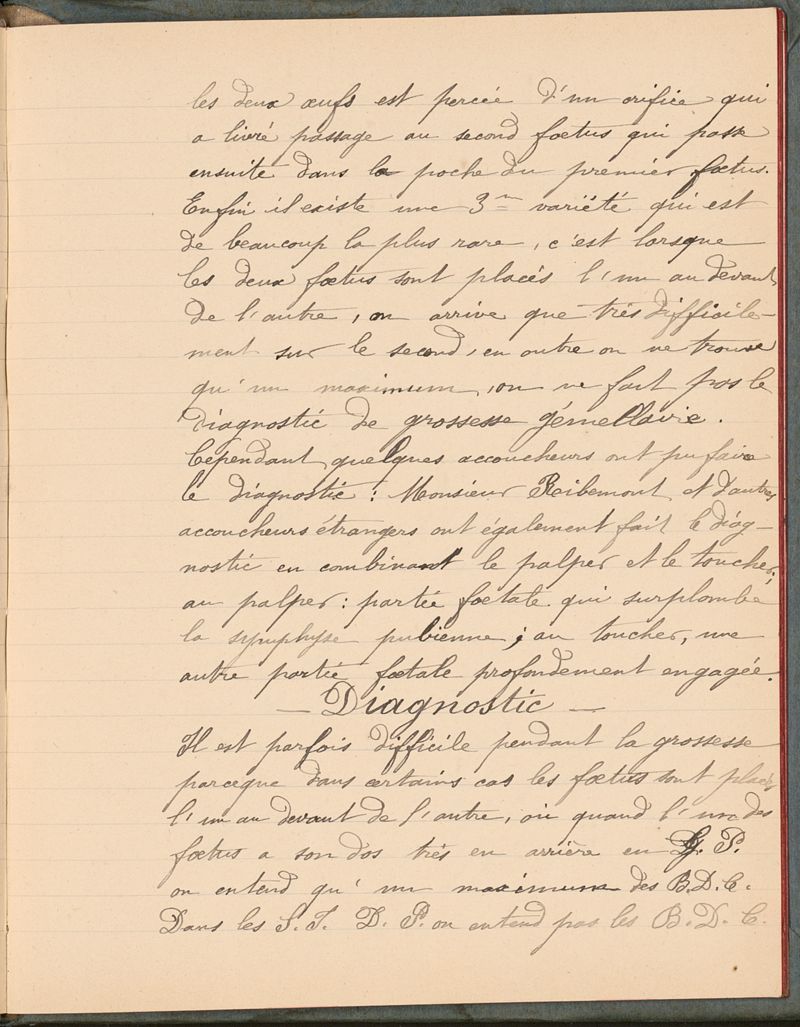 les deux œufs est percée d'un orifice qui
a livré passage au second fœtus qui passe
ensuite dans la poche du premier fœtus.
Enfin il existe une 3me variété qui est
de beaucoup la plus rare, c'est lorsque
les deux fœtus sont placés l'un au devant
de l'autre, on arrive que très difficile-
ment sur le second, en outre on ne trouve
qu'un maximum, on ne fait pas le
diagnostic de grossesse gémellaire.
Cependant quelques accoucheurs ont pu faire
le diagnostic : Monsieur Ribemont et d'autres
accoucheurs étrangers ont également fait le diag-
nostic en combinant le palper et le toucher;
au palper : partie fœtale qui surplombe
la symphyse pubienne ; au toucher, une
autre partie fœtale profondement engagée.
— Diagnostic —
Il est parfois difficile pendant la grossesse
parceque dans certains cas les fœtus sont placés
l'un au devant de l'autre, où quand l'un des
fœtus a son dos très en arrière en G. P.
on entend qu'un maximum des B.D.C.
Dans les S. I. D. P. on entend pas les B. D. C.